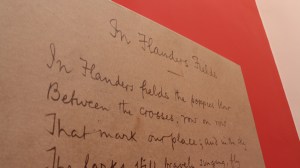 In Flanders Fields
In Flanders fields the poppies blow
Between the crosses, row on row
That mark our place; and in the sky
The larks still bravely singing, fly